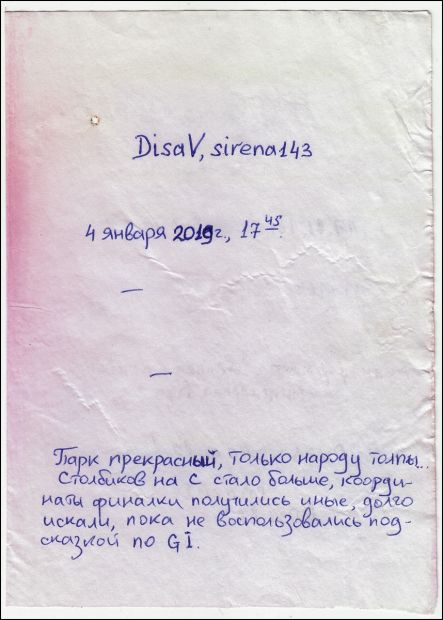 DisaV, sirena143
4 января 2019г., 17 45
—
—
Парк прекрасный, только народу толпы...
Столбиков на С стало больше, коорди-
наты финалки получились иные, долго
искали, пока не воспользовались под-
сказкой по GI.